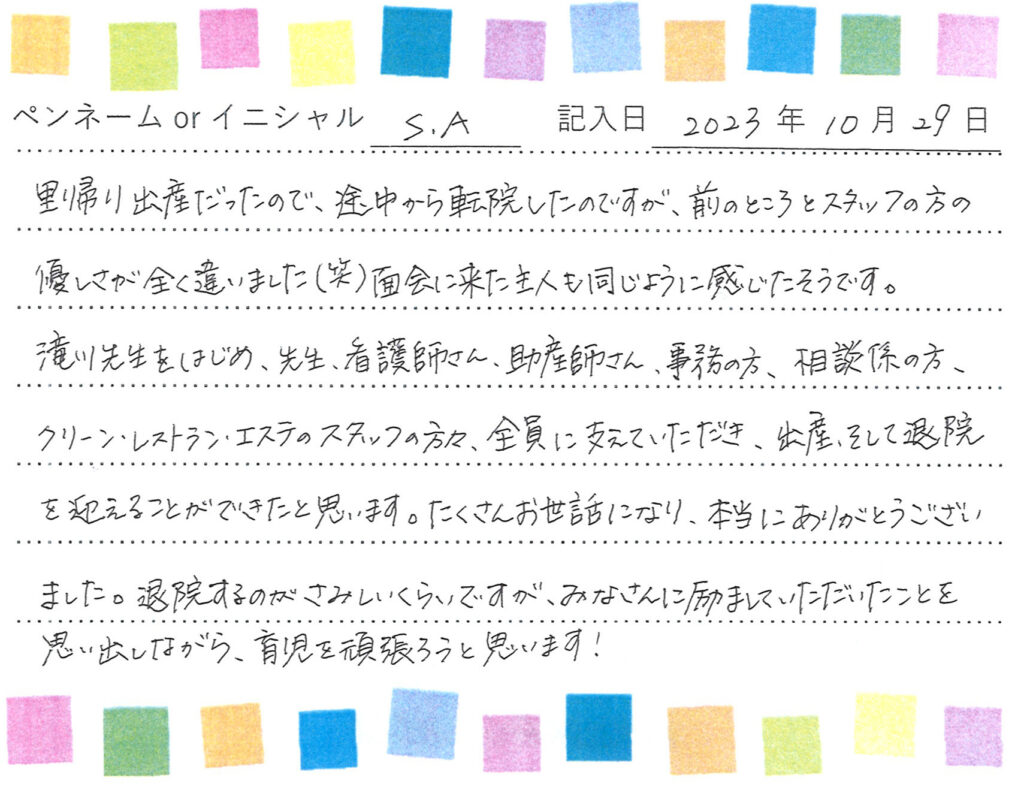 ペンネーム or イニシャル S.A 記入日 2023 年 10 月 29 日
里帰り出産だったので、途中から転院したのですが、前のところとスタッフの方の
優しさが全く違いました(笑)面会に来た主人も同じように感じたそうです。
滝川先生をはじめ、先生、看護師さん、助産師さん、事務の方、相談係の方、
クリーン・レストラン・エステのスタッフの方々、全員に支えていただき、出産、そして退院
を迎えることができたと思います。たくさんお世話になり、本当にありがとうござい
ました。退院するのがさみしいくらいですが、みなさんに励ましていただいたことを
思い出しながら、育児を頑張ろうと思います!